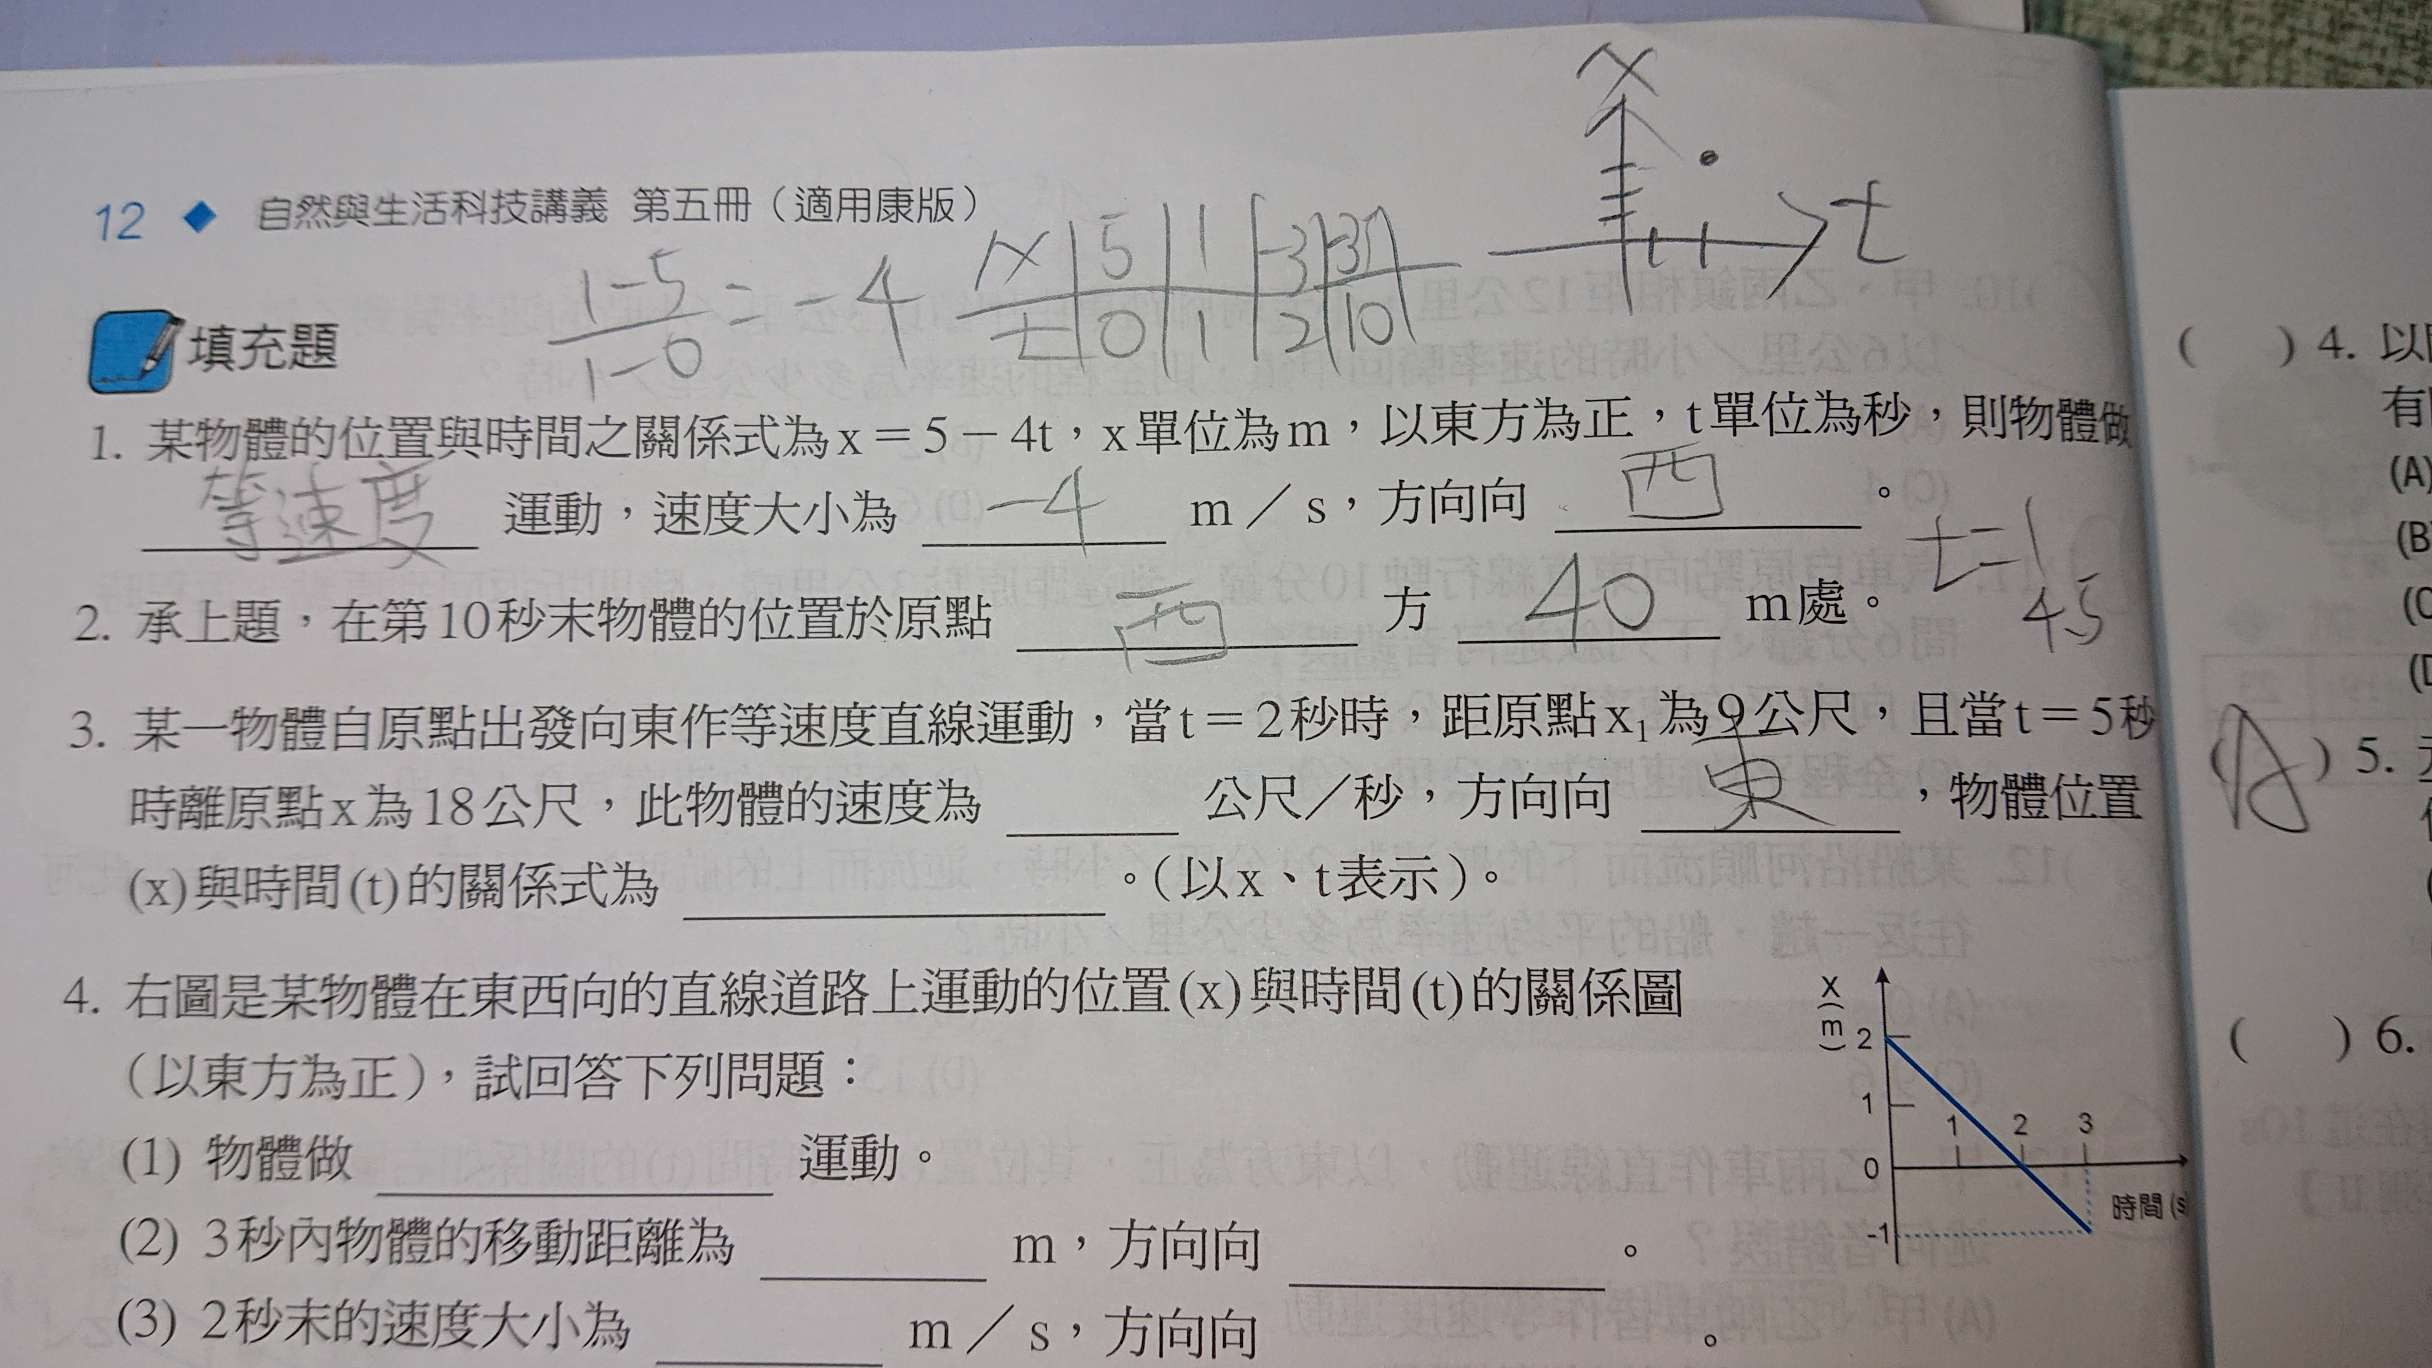 x
t
12 ◆ 自然與生活科技講義 第五冊（適用康版）
1-5
1-0
= -4
x 5 1 -3 -35
t 0 1 2 10
填充題
1. 某物體的位置與時間之關係式為x＝5－4t，x單位為m，以東方為正，t單位為秒，則物體做
等速度 運動，速度大小為 -4 m／s，方向向 西 。
t=1
45
2. 承上題，在第10秒末物體的位置於原點 西 方 40 m處。
3. 某一物體自原點出發向東作等速度直線運動，當t＝2秒時，距原點x₁為9公尺，且當t＝5秒
時離原點x為18公尺，此物體的速度為 公尺／秒，方向向 東 ，物體位置
(x)與時間(t)的關係式為 。(以x、t表示)。
4. 右圖是某物體在東西向的直線道路上運動的位置(x)與時間(t)的關係圖
（以東方為正），試回答下列問題：
(1) 物體做 運動。
(2) 3秒內物體的移動距離為 m，方向向 。
(3) 2秒末的速度大小為 m／s，方向向 。
x(m)
2
1
0
-1
1 2 3
時間(s
( ) 4. 以
有
(A)
(B
(C
(A) 5.
( ) 6.